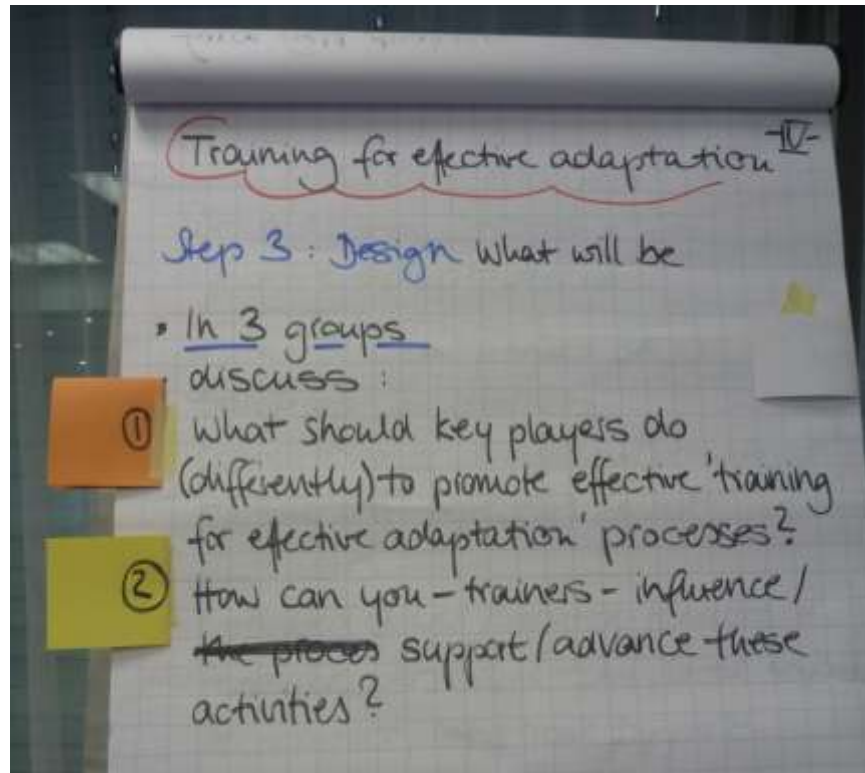 Training for efective adaptation -IV-
Step 3 : Design what will be
• In 3 groups
discuss :
① what should key players do
(differently) to promote effective 'training
for efective adaptation' processes?
② How can you - trainers - influence /
support / advance these
activities ?